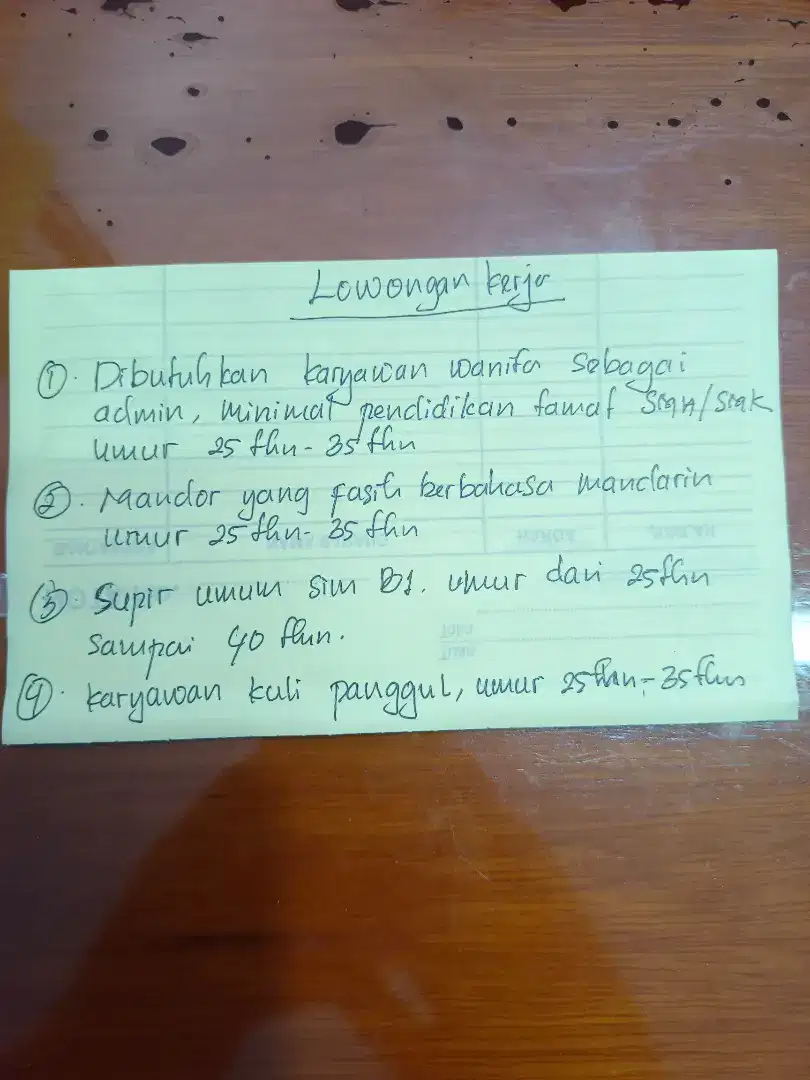 Lowongan kerja
①. Dibutuhkan karyawan wanita sebagai
admin, minimal pendidikan tamat SMA/SMK
umur 25 thn - 35 thn
②. Mandor yang fasih berbahasa mandarin
umur 25 thn - 35 thn
③ Supir umum sim B1. umur dari 25 thn
sampai 40 thn.
④. karyawan kuli panggul, umur 25 thn - 35 thn